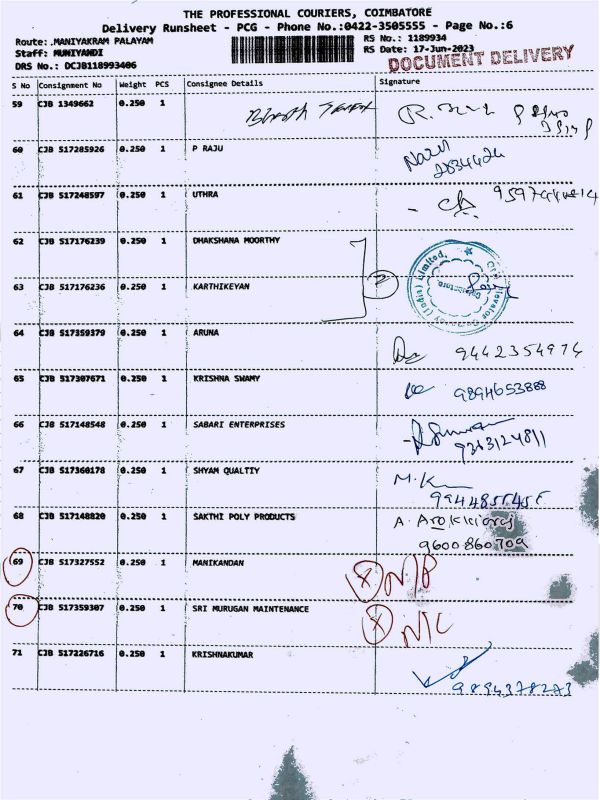 THE PROFESSIONAL COURIERS, COIMBATORE
Delivery Runsheet - PCG - Phone No.:0422-3505555 - Page No.:6
Route: .MANIYAKRAM PALAYAM RS No.: 1189934
Staff: MUNIYANDI RS Date: 17-Jun-2023
DRS No.: DCJB118993406 DOCUMENT DELIVERY
S No Consignment No Weight PCS Consignee Details Signature
59 CJB 1349662 0.250 1
60 CJB 517285926 0.250 1 P RAJU
61 CJB 517248597 0.250 1 UTHRA
62 CJB 517176239 0.250 1 DHAKSHANA MOORTHY
63 CJB 517176236 0.250 1 KARTHIKEYAN
64 CJB 517359379 0.250 1 ARUNA 9442354974
65 CJB 517307671 0.250 1 KRISHNA SWAMY 9894653888
66 CJB 517148548 0.250 1 SABARI ENTERPRISES 9363124811
67 CJB 517360178 0.250 1 SHYAM QUALTIY M.K
68 CJB 517148820 0.250 1 SAKTHI POLY PRODUCTS A. Arokkiaraj
9600860709
69 CJB 517327552 0.250 1 MANIKANDAN X N/P
70 CJB 517359307 0.250 1 SRI MURUGAN MAINTENANCE X N/C
71 CJB 517226716 0.250 1 KRISHNAKUMAR
9894378273